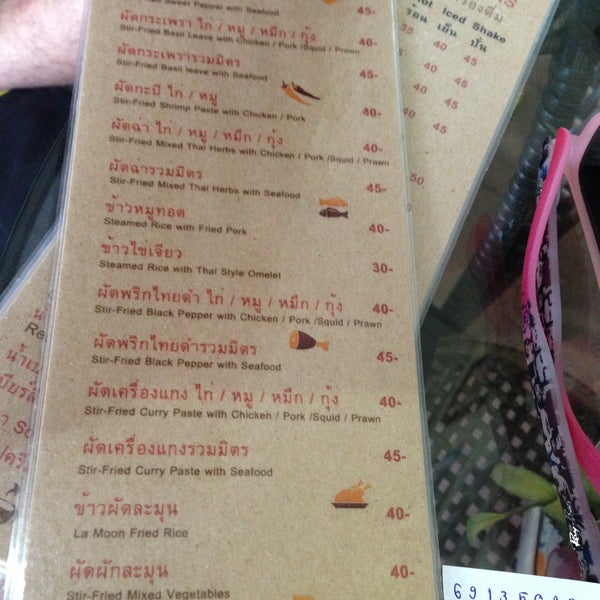 Sweet Pepper with Seafood
45-
ผัดกระเพรา ไก่ / หมู / หมึก / กุ้ง 40-
Stir-Fried Basil Leave with Chicken / Pork /Squid / Prawn
ผัดกระเพรารวมมิตร 45-
Stir-Fried Basil leave with Seafood
ผัดกะปิ ไก่ / หมู 40-
Stir-Fried Shrimp Paste with Chicken / Pork
ผัดฉ่า ไก่ / หมู / หมึก / กุ้ง 40-
Stir-Fried Mixed Thai Herbs with Chicken / Pork /Squid / Prawn
ผัดฉ่ารวมมิตร 45-
Stir-Fried Mixed Thai Herbs with Seafood
ข้าวหมูทอด 40-
Steamed Rice with Fried Pork
ข้าวไข่เจียว 30-
Steamed Rice with Thai Style Omelet
ผัดพริกไทยดำ ไก่ / หมู / หมึก / กุ้ง 40-
Stir-Fried Black Pepper with Chicken / Pork /Squid / Prawn
ผัดพริกไทยดำรวมมิตร 45-
Stir-Fried Black Pepper with Seafood
ผัดเครื่องแกง ไก่ / หมู / หมึก / กุ้ง 40-
Stir-Fried Curry Paste with Chicken / Pork /Squid / Prawn
ผัดเครื่องแกงรวมมิตร 45-
Stir-Fried Curry Paste with Seafood
ข้าวผัดละมุน 40-
La Moon Fried Rice
ผัดผักละมุน 40-
Stir-Fried Mixed Vegetables
Iced Shake
ร้อน เย็น ปั่น
40 45
40 45
40 45
50